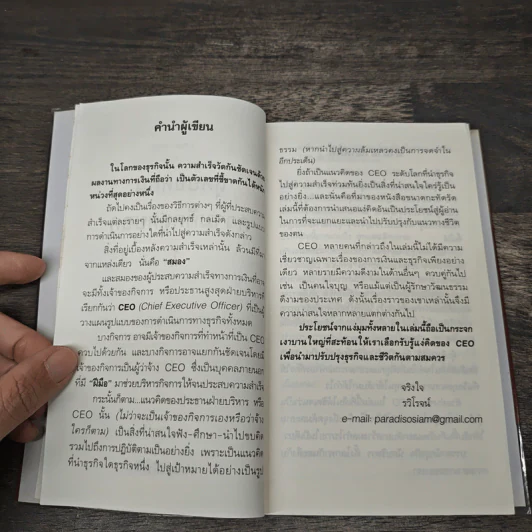 คำนำผู้เขียน
ในโลกของธุรกิจนั้น ความสำเร็จวัดกันชัดเจนด้วย
ผลงานทางการเงินที่ถือว่า เป็นตัวเลขที่ชี้ขาดกันได้หนัก
หน่วงที่สุดอย่างหนึ่ง
ถัดไปคงเป็นเรื่องของวิธีการต่างๆ ที่ผู้ที่ประสบความ
สำเร็จแต่ละรายๆ นั้นมีกลยุทธ์ กลเม็ด และรูปแบบ
การดำเนินการอย่างใดที่นำไปสู่ความสำเร็จดังกล่าว
สิ่งที่อยู่เบื้องหลังความสำเร็จเหล่านั้น ล้วนมีที่มา
จากแหล่งเดียว นั่นคือ "สมอง"
และสมองของผู้ประสบความสำเร็จทางการเงินที่อาจ
จะมีทั้งเจ้าของกิจการ หรือประธานสูงสุดฝ่ายบริหารที่
เรียกกันว่า CEO (Chief Executive Officer) ที่เป็นผู้
วางแผนรูปแบบของการดำเนินการทางธุรกิจทั้งหมด
บางกิจการ อาจมีเจ้าของกิจการที่ทำหน้าที่เป็น CEO
ควบไปด้วยกัน และบางกิจการอาจแยกกันชัดเจนโดยมี
เจ้าของกิจการเป็นผู้ว่าจ้าง CEO ซึ่งเป็นบุคคลภายนอก
ที่มี "ฝีมือ" มาช่วยบริหารกิจการให้จนประสบความสำเร็จ
กระนั้นก็ตาม...แนวคิดของประธานฝ่ายบริหาร หรือ
CEO นั้น (ไม่ว่าจะเป็นเจ้าของกิจการเองหรือว่าจ้าง
ใครก็ตาม) เป็นสิ่งที่น่าสนใจฟัง-ศึกษา-นำไปขบคิด
รวมไปถึงการปฏิบัติตามเป็นอย่างยิ่ง เพราะเป็นแนวคิด
ที่นำธุรกิจใดธุรกิจหนึ่ง ไปสู่เป้าหมายได้อย่างเป็นรูป
ธรรม (หากนำไปสู่ความล้มเหลวคงเป็นการจดจำใน
อีกประเด็น)
ยิ่งถ้าเป็นแนวคิดของ CEO ระดับโลกที่นำธุรกิจ
ไปสู่ความสำเร็จท่วมท้นยิ่งเป็นสิ่งที่น่าสนใจใคร่รู้เป็น
อย่างยิ่ง...และนั่นคือที่มาของหนังสือขนาดกะทัดรัด
เล่มนี้ที่ต้องการนำเสนอแง่คิดอันเป็นประโยชน์สู่ผู้อ่าน
ในการที่จะแยกแยะและนำไปปรับปรุงกับแนวทางชีวิต
ของตน
CEO หลายคนที่กล่าวถึงในเล่มนี้ไม่ได้มีความ
เชี่ยวชาญเฉพาะเรื่องของการเงินและธุรกิจเพียงอย่าง
เดียว หลายรายมีความดีงามในด้านอื่นๆ ควบคู่กันไป
เช่น เป็นคนใจบุญ หรือแม้แต่เป็นผู้รักษาวัฒนธรรม
ดีงามของประเทศ ดังนั้นเรื่องราวของเขาเหล่านั้นจึงมี
ความน่าสนใจหลากหลายแตกต่างกันไป
ประโยชน์จากแง่มุมทั้งหลายในเล่มนี้ถือเป็นกระจก
เงาบานใหญ่ที่สะท้อนให้เราเลือกรับรู้แง่คิดของ CEO
เพื่อนำมาปรับปรุงธุรกิจและชีวิตกันตามสมควร
จริงใจ
รวิโรจน์
e-mail: paradisosiam@gmail.com